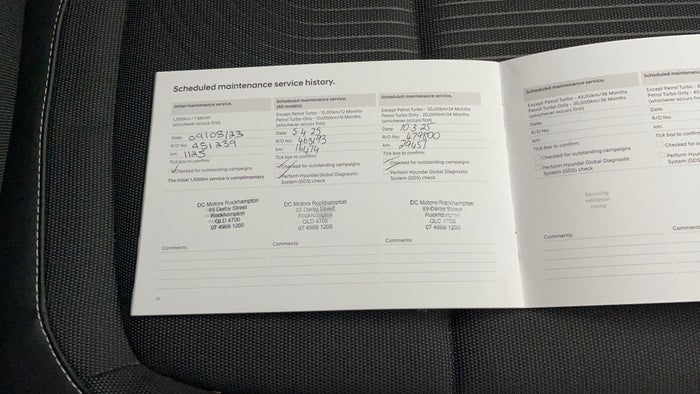 Scheduled maintenance service history.
Initial maintenance service.
1,500km / 1 Month
(whichever occurs first)
Date: 09/08/23
R/O No: 451239
km: 1125
Tick box to confirm:
Checked for outstanding campaigns
The initial 1,500km service is complimentary
DC Motors Rockhampton
85 Derby Street
Rockhampton
QLD 4700
07 4999 1200
Comments:
Scheduled maintenance service.
(All models)
Except Petrol Turbo - 15,000km/12 Months
Petrol Turbo Only - 10,000km/12 Months
(whichever occurs first)
Date: 5.4.25
R/O No: 463193
km: 16474
Tick box to confirm:
Checked for outstanding campaigns
Perform Hyundai Global Diagnostic
System (GDS) check
DC Motors Rockhampton
85 Derby Street
Rockhampton
QLD 4700
07 4999 1200
Comments:
Scheduled maintenance service.
Except Petrol Turbo - 30,000km/24 Months
Petrol Turbo Only - 20,000km/24 Months
(whichever occurs first)
Date: 10.3.25
R/O No: 479800
km: 29451
Tick box to confirm:
Checked for outstanding campaigns
Perform Hyundai Global Diagnostic
System (GDS) check
DC Motors Rockhampton
85 Derby Street
Rockhampton
QLD 4700
07 4999 1200
Comments:
20
Scheduled maintenance service.
Except Petrol Turbo - 45,000km/36 Months
Petrol Turbo Only - 30,000km/36 Months
(whichever occurs first)
Date:
R/O No:
km:
Tick box to confirm:
Checked for outstanding campaigns
Perform Hyundai Global Diagnostic
System (GDS) check
Servicing
validation
stamp
Comments:
Scheduled maintenance
Except Petrol Turbo
Petrol Turbo Only
(whichever occurs
Date:
R/O No:
km:
Tick box to confirm:
Checked for
Perform Hyundai
System (GDS)